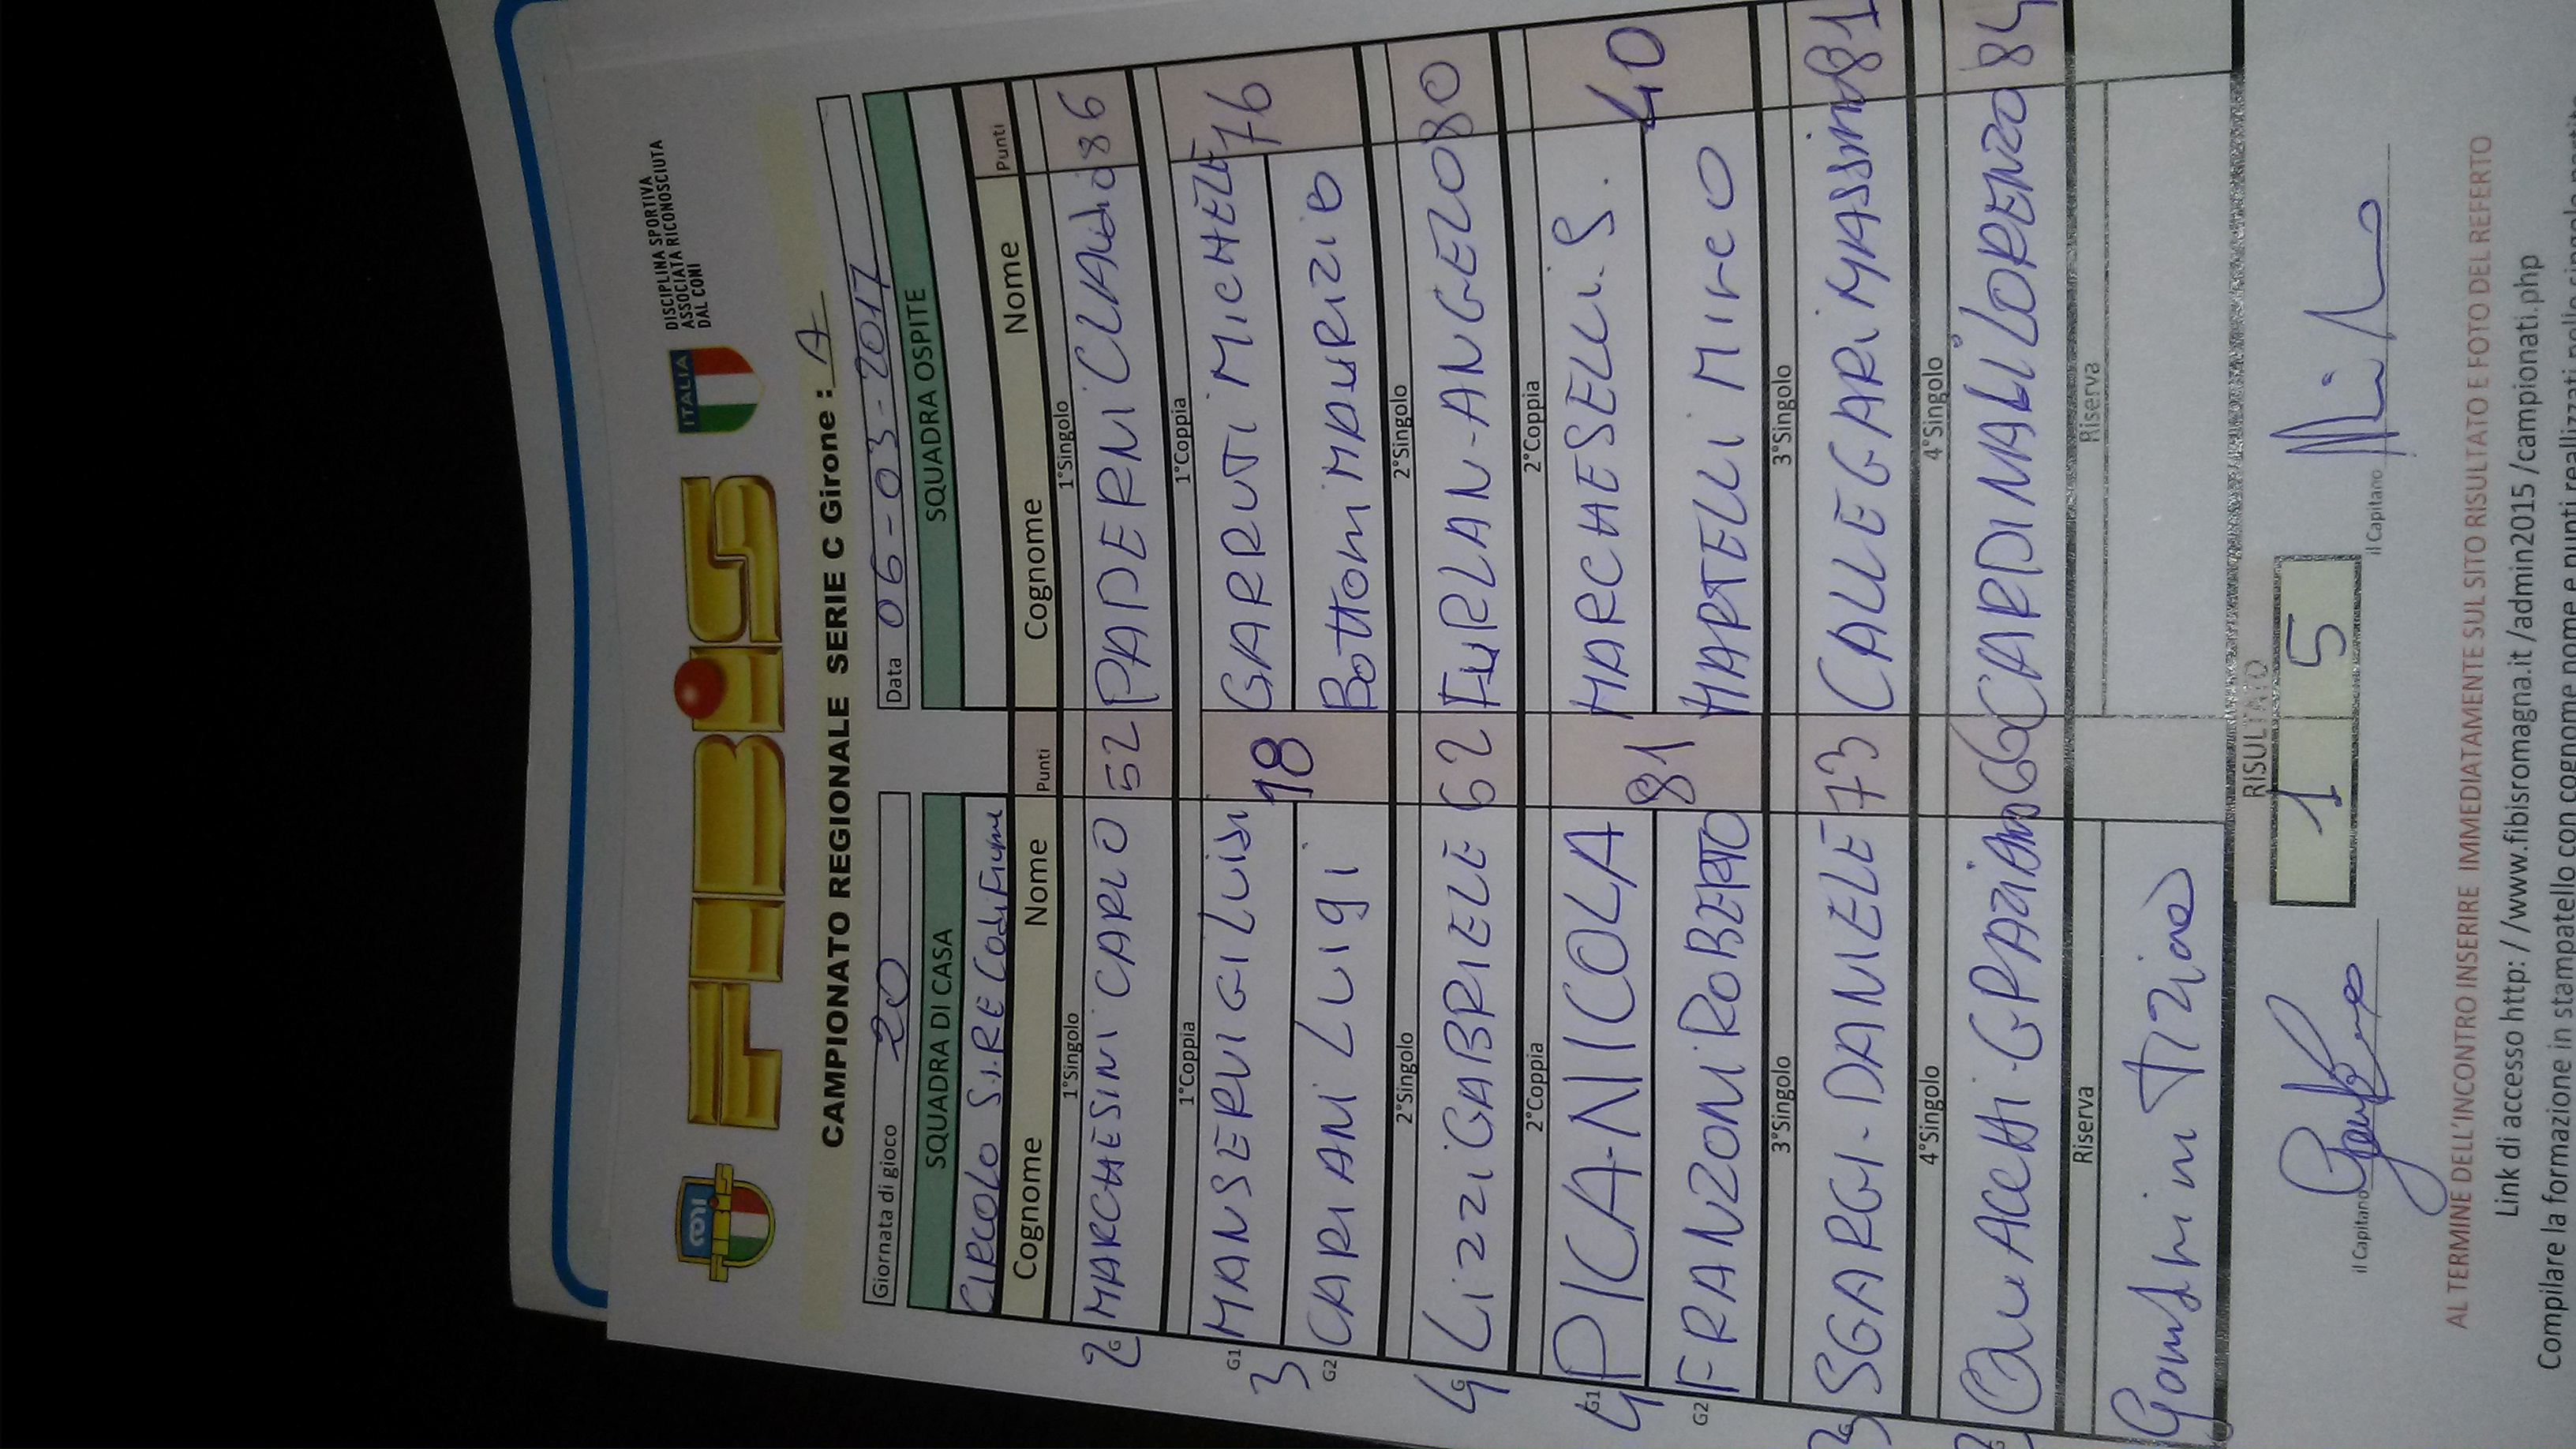 CONI
FIBIS
FIBiS
ITALIA
DISCIPLINA SPORTIVA
ASSOCIATA RICONOSCIUTA
DAL CONI
CAMPIONATO REGIONALE SERIE C Girone : A
Giornata di gioco 20 Data 06-03-2017
SQUADRA DI CASA SQUADRA OSPITE
CIRCOLO S.I.RE Codifiume
Cognome Nome Punti Cognome Nome Punti
1°Singolo 1°Singolo
2 G MARCHESINI CARLO 52 PADERNI CLAUDIO 86
1°Coppia 1°Coppia
3 G1 MANSERVIGI LUISI 78 GARRUTI MICHELE 76
G2 CARIANI LUIGI Bottoni MAURIZIO
2°Singolo 2°Singolo
4 G LIZZI GABRIELE 62 FURLAN-ANGELO 80
2°Coppia 2°Coppia
4 G1 PICA-NICOLA 81 MARCHESELLI.S. 40
G2 FRANZONI ROBERTO MARTELLI MIRCO
3°Singolo 3°Singolo
3 G SGARGI-DANIELE 73 CALLEGARI MASSIMO 81
4°Singolo 4°Singolo
G GRAZIANO 66 CARDINALI LORENZO 84
Riserva Riserva
Tiziano
RISULTATO
1 5
il Capitano il Capitano
AL TERMINE DELL'INCONTRO INSERIRE IMMEDIATAMENTE SUL SITO RISULTATO E FOTO DEL REFERTO
Link di accesso http: / /www.fibisromagna.it /admin2015 /campionati.php
Compilare la formazione in stampatello con cognome nome e punti realizzati nelle singole partite